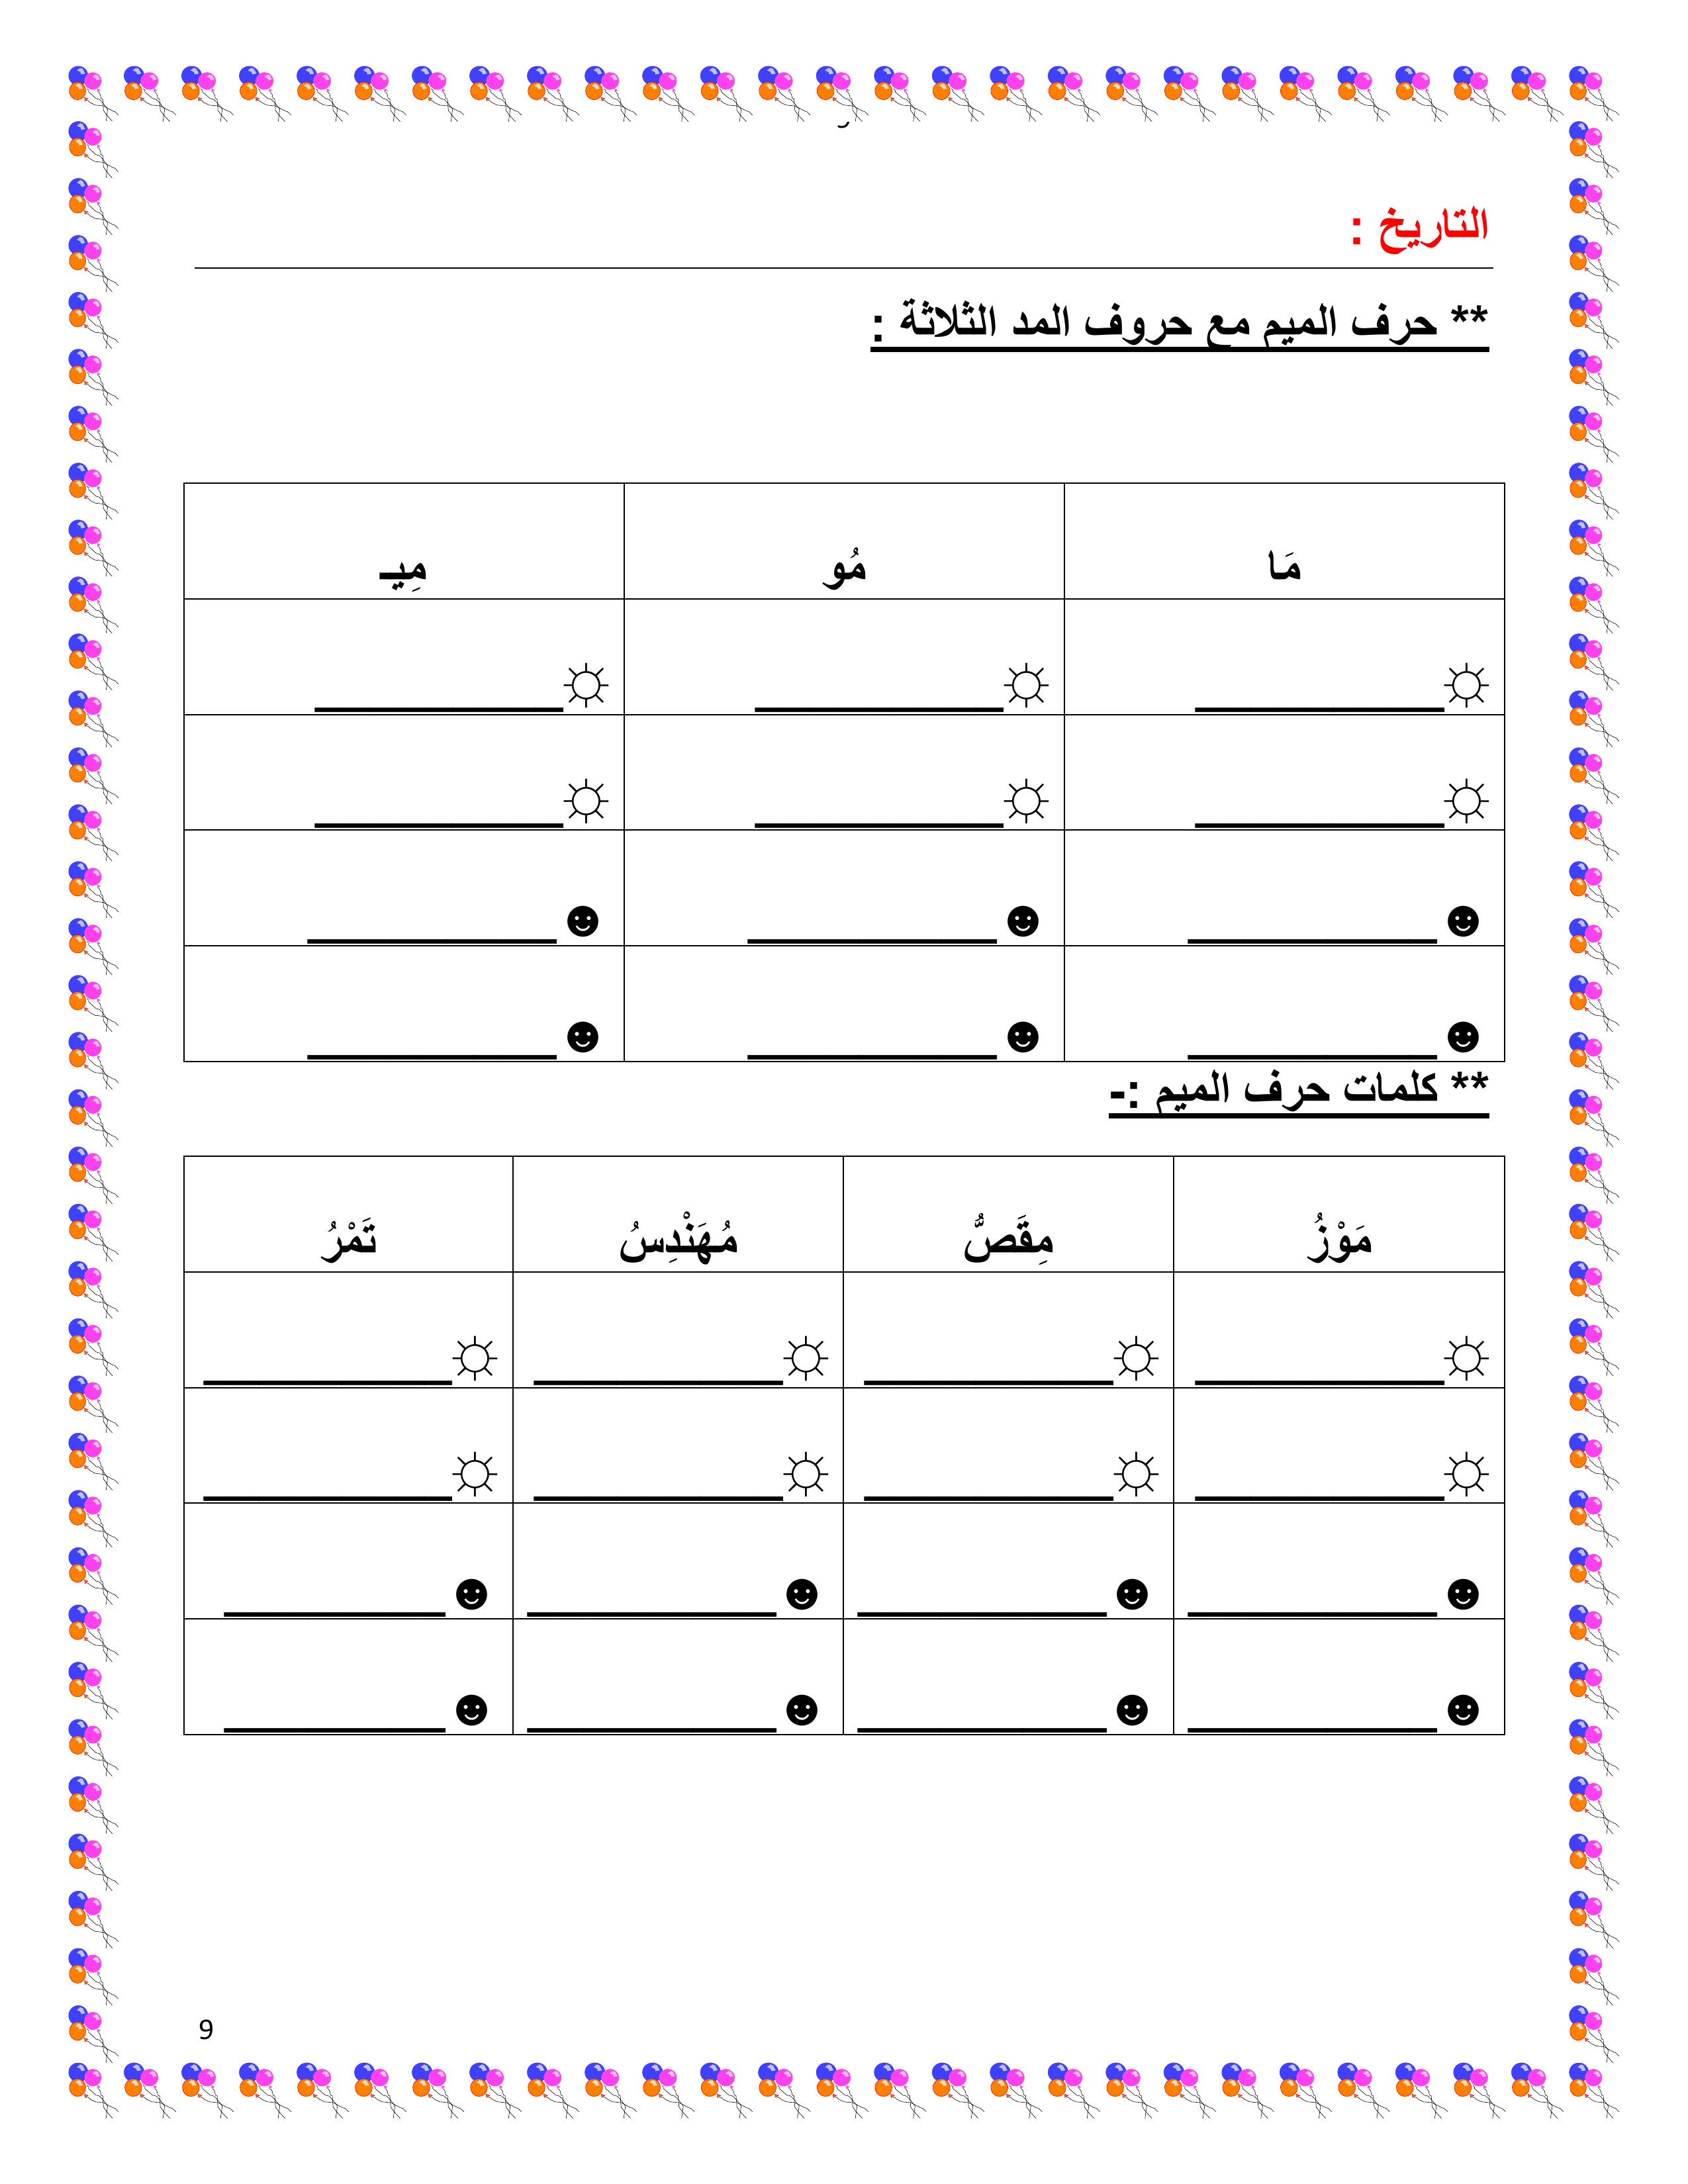 التاريخ :
** حرف الميم مع حروف المد الثلاثة :
مَا مُو مِيـ
☼_________ ☼_________ ☼_________
☼_________ ☼_________ ☼_________
☻_________ ☻_________ ☻_________
☻_________ ☻_________ ☻_________
** كلمات حرف الميم :-
مَوْزُ مِقَصُّ مُهَنْدِسُ تَمْرُ
☼_________ ☼_________ ☼_________ ☼_________
☼_________ ☼_________ ☼_________ ☼_________
☻_________ ☻_________ ☻_________ ☻________
☻_________ ☻_________ ☻_________ ☻________
9